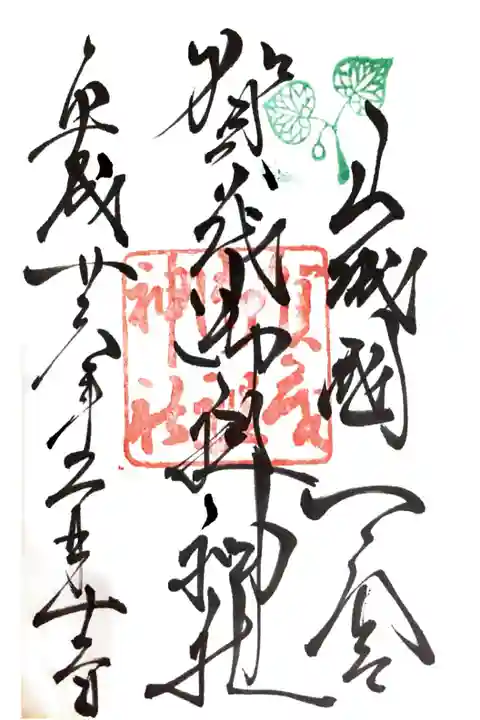 山城國 一宮
賀茂御祖神社
平成廿六年五月十一日
賀茂
御祖
神社